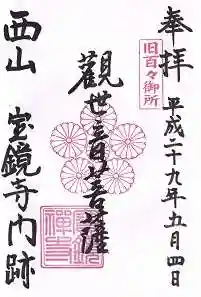 奉拝
旧百々御所
平成二十九年五月四日
觀世音菩薩
寳鏡禅寺
西山 宝鏡寺门跡